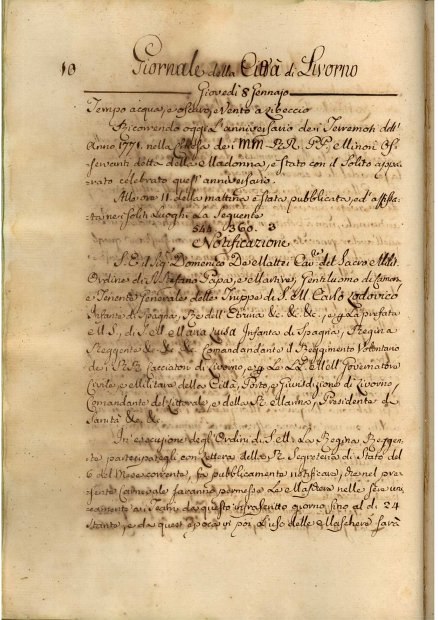 10 Giornale della Città di Livorno
Giovedì 8 Gennajo
Tempo acqua, e oscuro, e vento a Libeccio
Ricorrendo oggi l'anniversario dei Terremoti dell'
Anno 1771. nella Chiesa dei MM. RR. PP. Minori Os-
servanti detta della Madonna, è stato con il solito appa-
rato celebrato quest'anniversario.
Alle ore 11. della mattina è stata pubblicata, ed affissa
ne i soliti Luoghi La Seguente
360. 3
Notificazione
S. E. il Sig. Domenico De Mattei Cav. del Sacro e Milit.
Ordine di S. Stefano Papa, e Martire, Gentiluomo di Camera
e Tenente Generale delle Truppe di S. M. Carlo Lodovico
Infante di Spagna, Re dell'Etruria &c. &c. &c., e p. La prefata
M. S., di S. M. Maria Luisa Infanta di Spagna, Regina
Reggente &c. &c. &c. Comandante il Reggimento Volontario
dei RR. Cacciatori di Livorno, e p. Le LL. MM. Governatore
Civile, e Militare della Città, Porto, e Giurisdizione di Livorno
Comandante del Littorale e della R. Marina, Presidente di
Sanità &c. &c.
In esecuzione degli Ordini di S. M. La Regina Reggen-
te partecipategli con Lettera della R. Segreteria di Stato del
6 del Mese corrente, fa pubblicamente notificare, che nel pre-
sente Carnevale saranno permesse Le Maschere nelle sere uni-
camente ai Teatri da questo infrascritto giorno sino al dì 24
stante, e da quest'epoca in poi, L'uso delle Maschere sarà